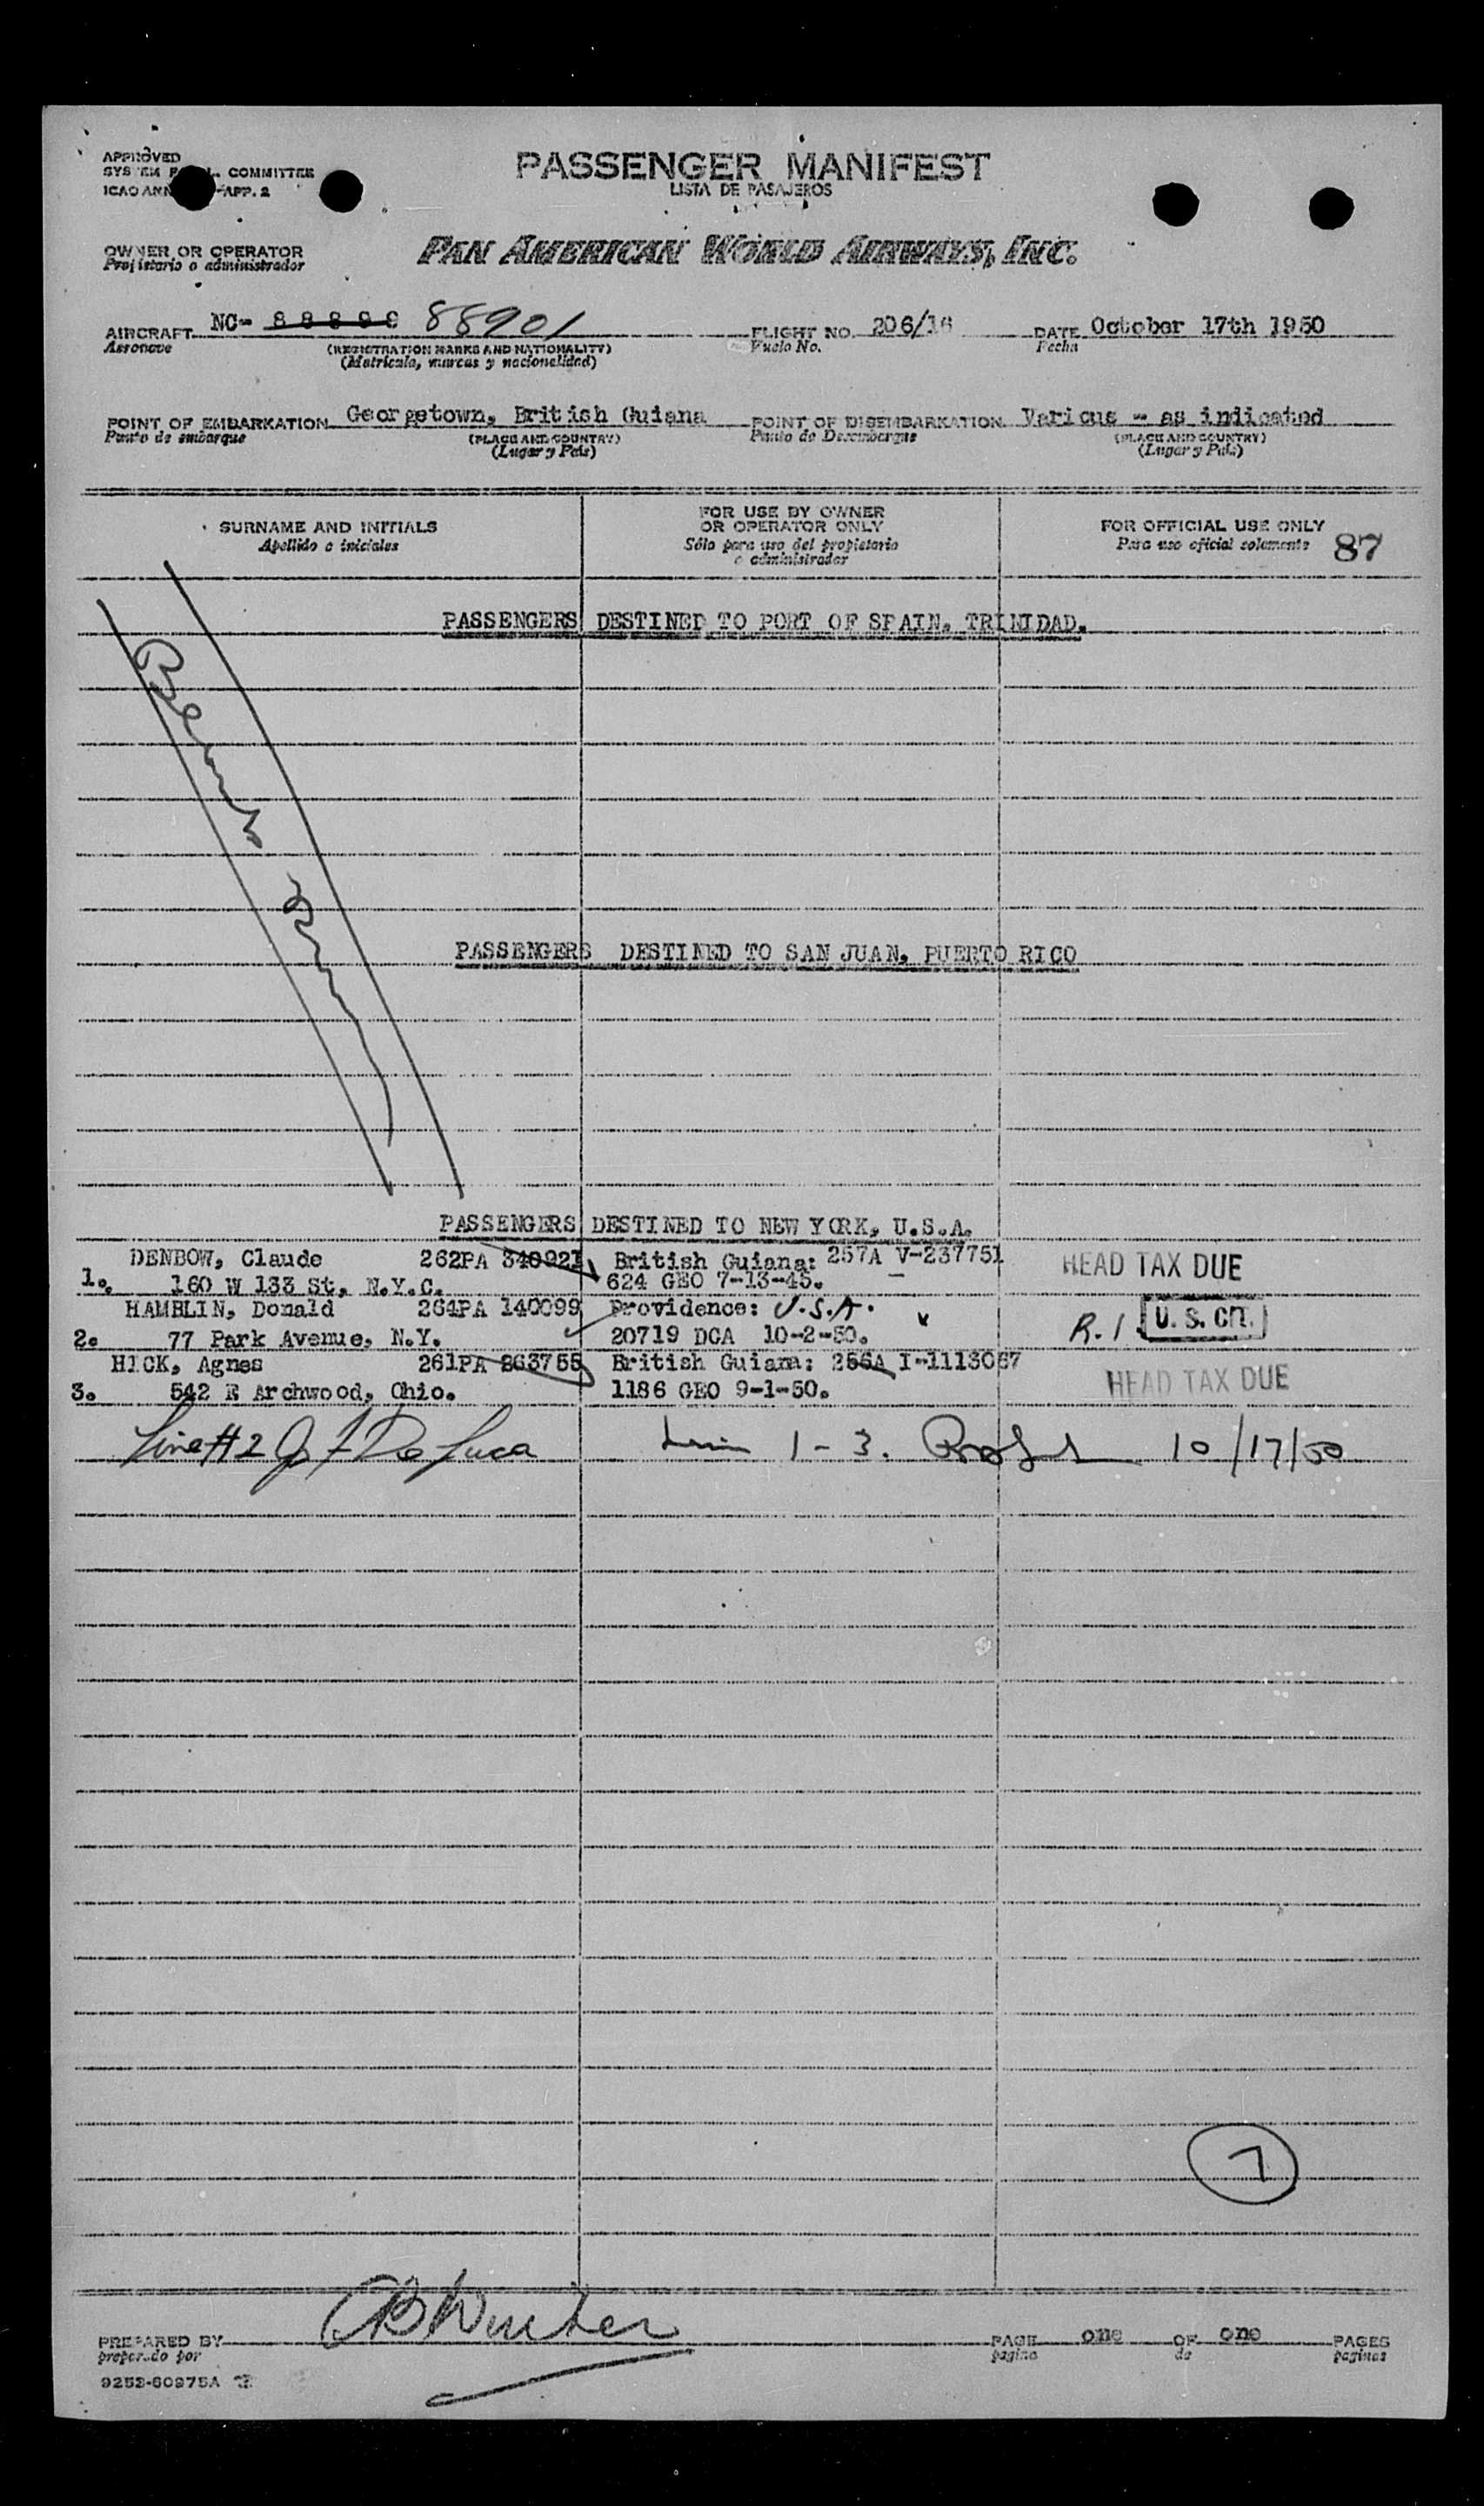 APPROVED
COMMITTEE
APP. 2
PASSENGER MANIFEST
LISTA DE PASAJEROS
OWNER OR OPERATOR
Propietario o administrador
PAN AMERICAN WORLD AIRWAYS, INC.
AIRCRAFT NC- 88899 88901 FLIGHT NO. 206/16 DATE October 17th 1950
Aeronave (REGISTRATION MARKS AND NATIONALITY) Vuelo No. Fecha
(Matricula, marcas y nacionalidad)
POINT OF EMBARKATION Georgetown, British Guiana POINT OF DISEMBARKATION Various - as indicated
Punto de embarque (PLACE AND COUNTRY) Punto de Desembarque (PLACE AND COUNTRY)
(Lugar y Pais) (Lugar y Pais)
SURNAME AND INITIALS FOR USE BY OWNER OR OPERATOR ONLY FOR OFFICIAL USE ONLY
Apellido e iniciales Sólo para uso del propietario o administrador Para uso oficial solamente 87
PASSENGERS DESTINED TO PORT OF SPAIN, TRINIDAD.
PASSENGERS DESTINED TO SAN JUAN, PUERTO RICO
PASSENGERS DESTINED TO NEW YORK, U.S.A.
DENBOW, Claude 262PA 340921 British Guiana: 257A V-237751 HEAD TAX DUE
1. 160 W 133 St, N.Y.C. 624 GEO 7-13-45.
HAMBLIN, Donald 264PA 140099 Providence: U.S.A. R.I. U. S. CIT.
2. 77 Park Avenue, N.Y. 20719 DCA 10-2-50.
HICK, Agnes 261PA 863755 British Guiana: 256A I-1113067 HEAD TAX DUE
3. 542 E Archwood, Ohio. 1186 GEO 9-1-50.
Line #2 J F De Luca 1-3. 10/17/50
7
PREPARED BY PAGE one OF one PAGES
preparado por pagina de paginas
9253-60975A